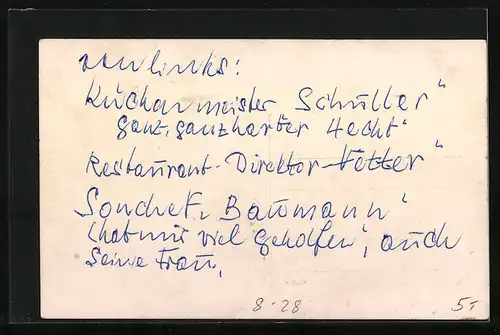 von links:
Küchenmeister „Schuller"
ganz, ganz harter Hecht"
Restaurant-Direktor Vetter"
Souchef, Baumann"
(hat mir viel geholfen", auch
seine Frau,
8-28 5,-